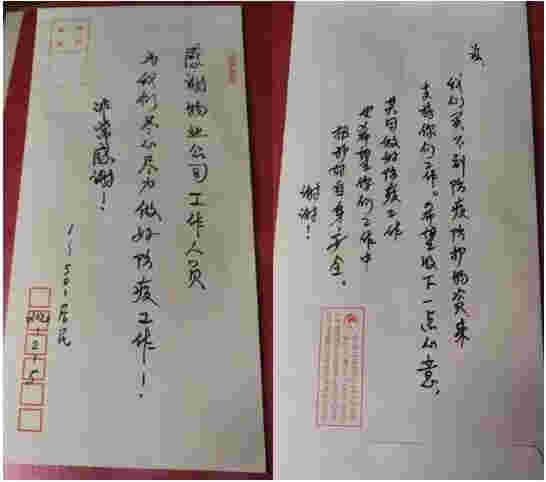 感谢物业公司工作人员
为我们尽心尽力做好防疫工作！
非常感谢！
1-501居民
我们买不到防疫防护物资来
支持你们工作。希望收下一点心意，
共同做好防疫工作
也希望你们工作中
保护好自身安全。
谢谢！